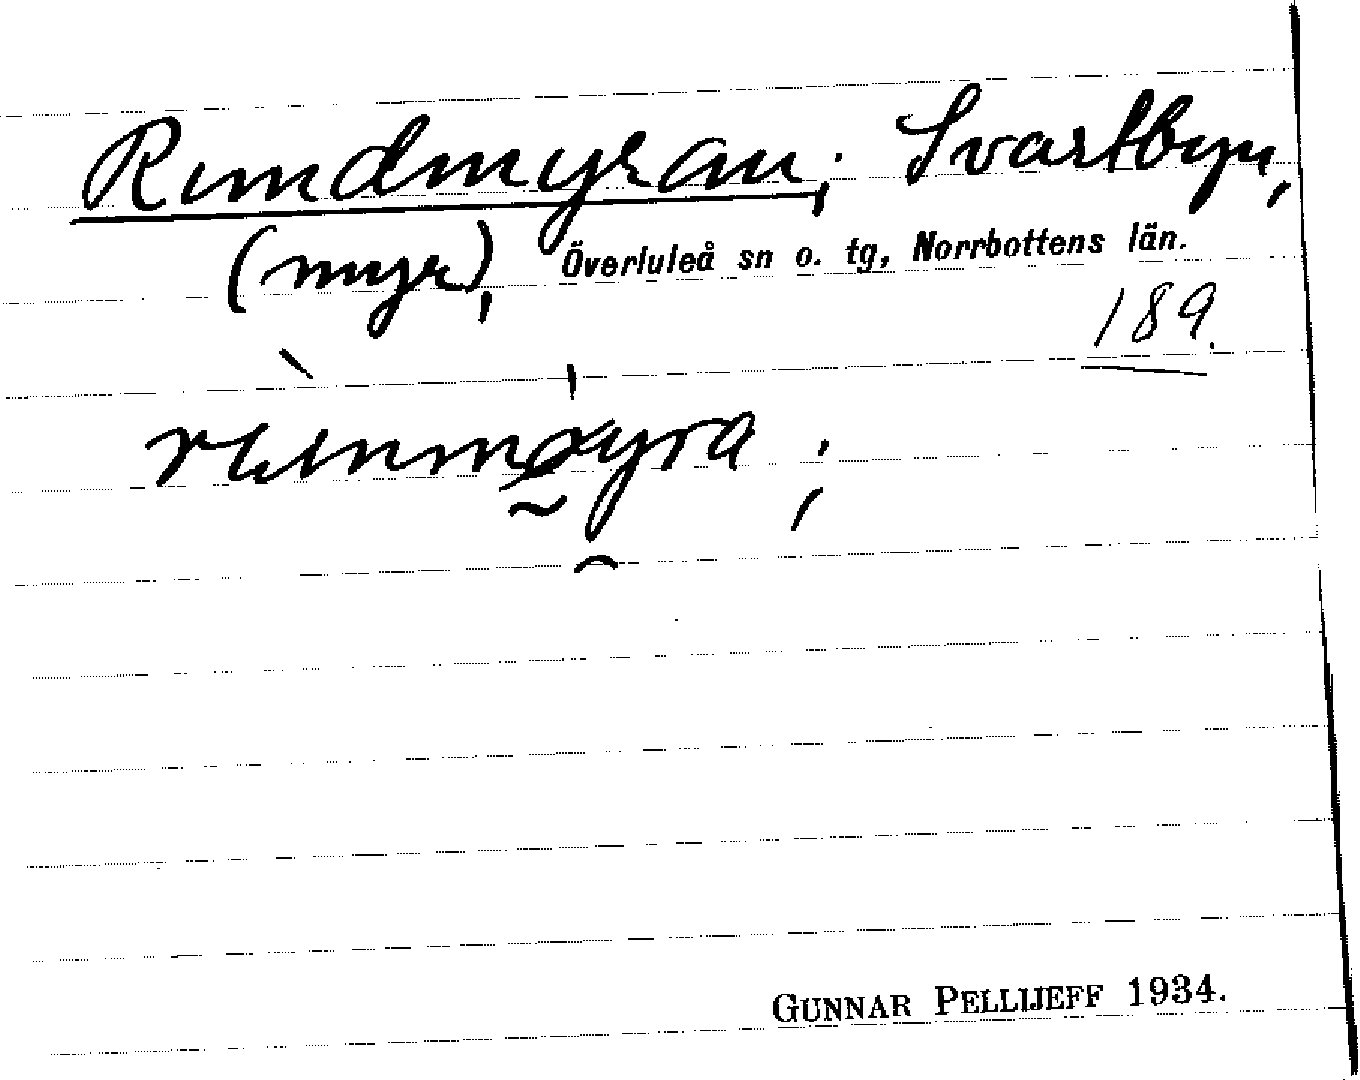 Rundmyran; Svartbyn,
(myr), Överluleå sn o. tg, Norrbottens län.
189.
GUNNAR PELLIJEFF 1934.